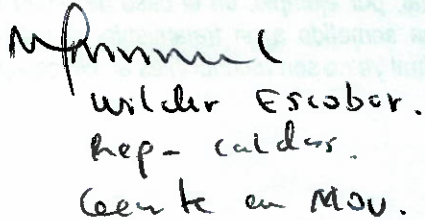 Wilder Escobar.
Rep- Caldas.
Gente en Mov.